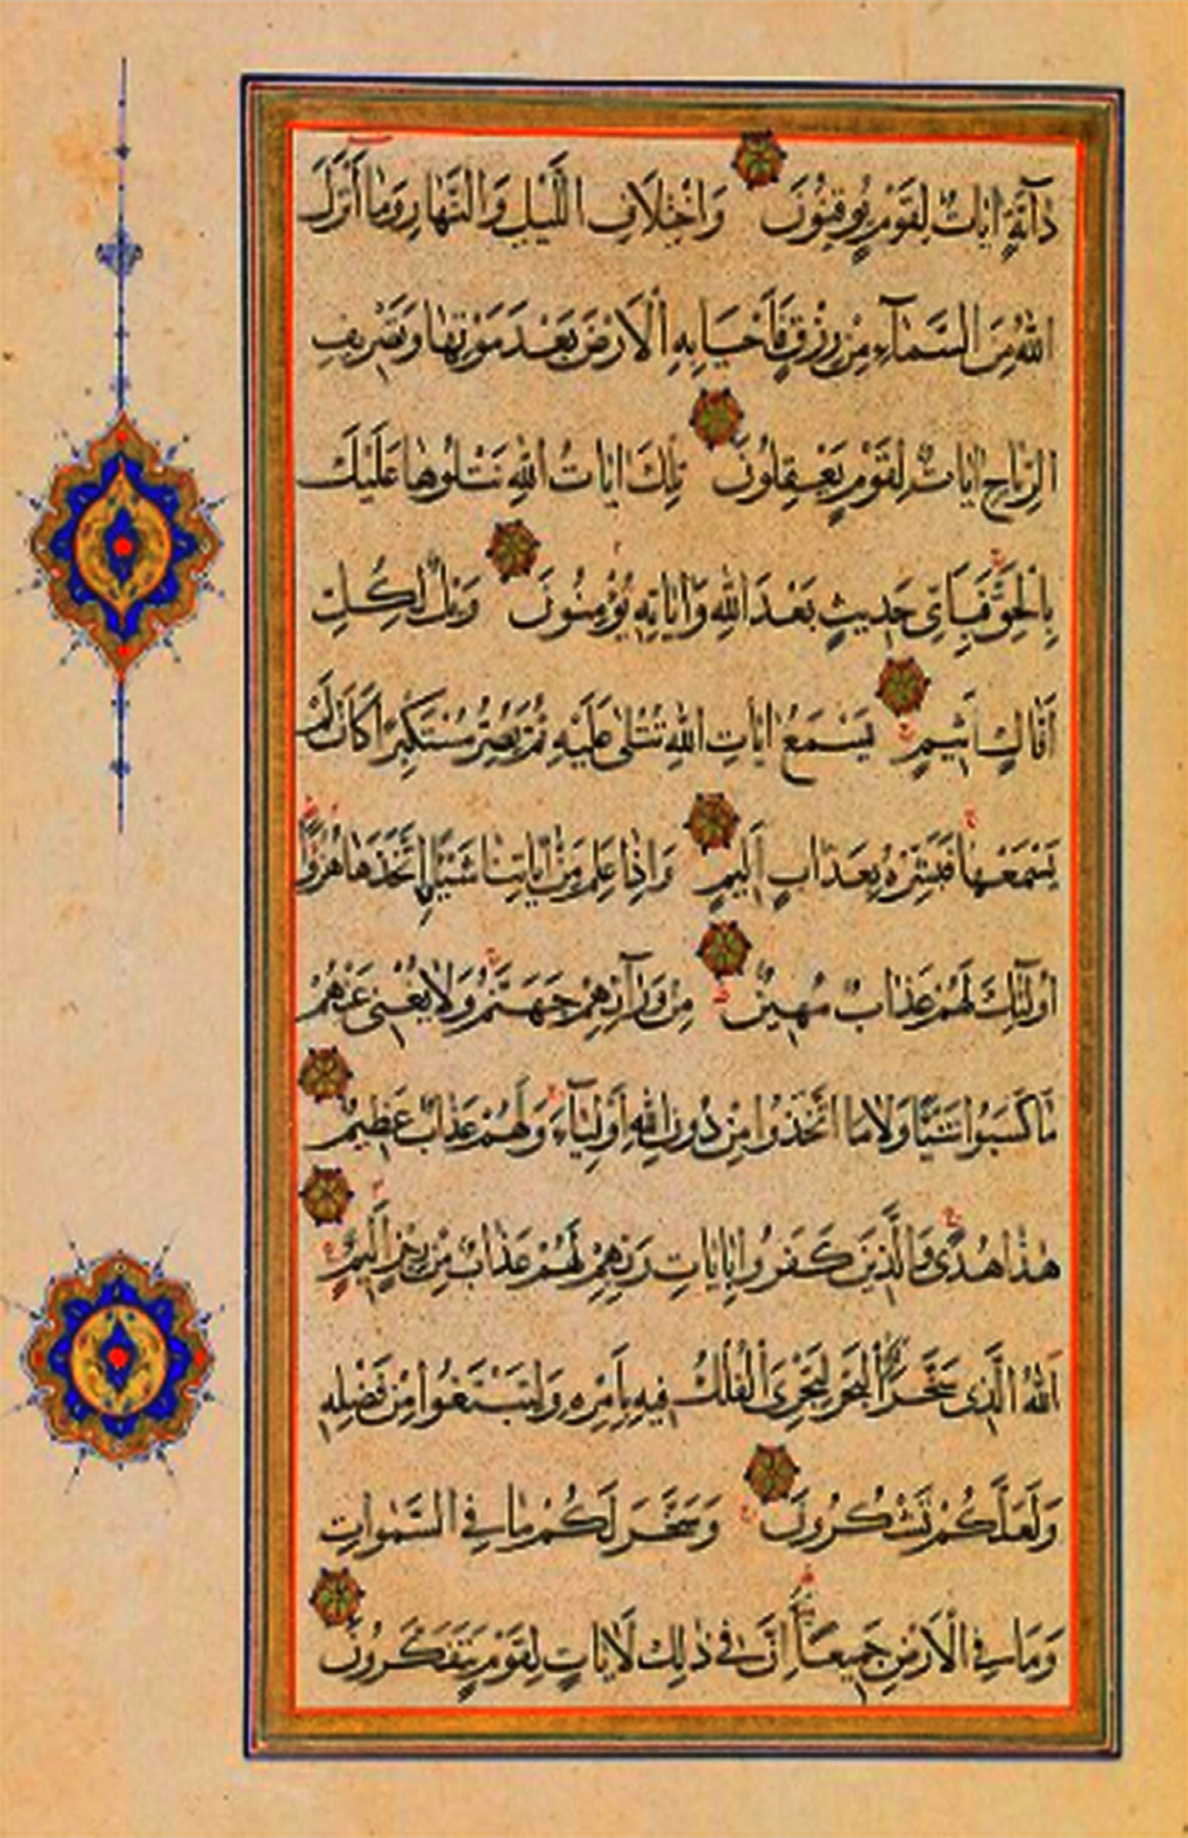 دَآبَّةٍ اٰيَاتٌ لِقَوْمٍ يُوقِنُونَ وَاخْتِلَافِ اللَّيْلِ وَالنَّهَارِ وَمَا اَنْزَلَ
اللّٰهُ مِنَ السَّمَآءِ مِنْ رِزْقٍ فَاَحْيَا بِهِ الْاَرْضَ بَعْدَ مَوْتِهَا وَتَصْرِيفِ
الرِّيَاحِ اٰيَاتٌ لِقَوْمٍ يَعْقِلُونَ تِلْكَ اٰيَاتُ اللّٰهِ نَتْلُوهَا عَلَيْكَ
بِالْحَقِّ فَبِاَيِّ حَدِيثٍ بَعْدَ اللّٰهِ وَاٰيَاتِهِ يُؤْمِنُونَ وَيْلٌ لِكُلِّ
اَفَّاكٍ اَثِيمٍ يَسْمَعُ اٰيَاتِ اللّٰهِ تُتْلٰى عَلَيْهِ ثُمَّ يُصِرُّ مُسْتَكْبِرًا كَاَنْ لَمْ
يَسْمَعْهَا فَبَشِّرْهُ بِعَذَابٍ اَلِيمٍ وَاِذَا عَلِمَ مِنْ اٰيَاتِنَا شَيْئًا اِتَّخَذَهَا هُزُوًا
اُولٰٓئِكَ لَهُمْ عَذَابٌ مُهِينٌ مِنْ وَرَآئِهِمْ جَهَنَّمُ وَلَا يُغْنِي عَنْهُمْ
مَا كَسَبُوا شَيْئًا وَلَا مَا اتَّخَذُوا مِنْ دُونِ اللّٰهِ اَوْلِيَآءَ وَلَهُمْ عَذَابٌ عَظِيمٌ
هٰذَا هُدًى وَالَّذِينَ كَفَرُوا بِاٰيَاتِ رَبِّهِمْ لَهُمْ عَذَابٌ مِنْ رِجْزٍ اَلِيمٌ
اَللّٰهُ الَّذِي سَخَّرَ لَكُمُ الْبَحْرَ لِتَجْرِيَ الْفُلْكُ فِيهِ بِاَمْرِهِ وَلِتَبْتَغُوا مِنْ فَضْلِهِ
وَلَعَلَّكُمْ تَشْكُرُونَ وَسَخَّرَ لَكُمْ مَا فِي السَّمٰوَاتِ
وَمَا فِي الْاَرْضِ جَمِيعًا مِنْهُ اِنَّ فِي ذٰلِكَ لَاٰيَاتٍ لِقَوْمٍ يَتَفَكَّرُونَ